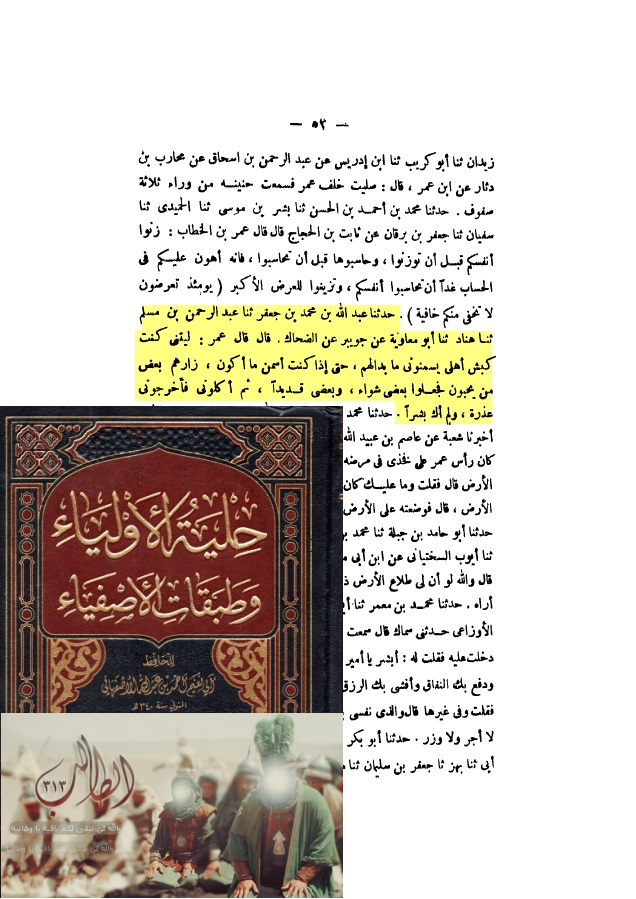 — ٥٢ —
زيدان ثنا أبو كريب ثنا ابن إدريس عن عبد الرحمن بن اسحاق عن محارب بن
دثار عن ابن عمر ، قال : صليت خلف عمر فسمعت حنينه من وراء ثلاثة
صفوف . حدثنا محمد بن أحمد بن الحسن ثنا بشر بن موسى ثنا الحميدى ثنا
سفيان ثنا جعفر بن برقان عن ثابت بن الحجاج قال قال عمر بن الخطاب : زنوا
أنفسكم قبل أن توزنوا ، وحاسبوها قبل أن تحاسبوا ، فانه أهون عليكم فى
الحساب غداً أن تحاسبوا أنفسكم ، وتزينوا للعرض الأكبر ( يومئذ تعرضون
لا تخفى منكم خافية ) . حدثنا عبد الله بن محمد بن جعفر ثنا عبد الرحمن بن مسلم
ثنا هناد ثنا أبو معاوية عن جويبر عن الضحاك . قال قال عمر : ليتنى كنت
كبش أهلى يسمنونى ما بدالهم ، حتى إذا كنت أسمن ما أكون ، زارهم بعض
من يحبون فجعلوا بعضى شواء ، وبعضى قديداً ، ثم أكلونى فأخرجونى
عذرة ، ولم أك بشراً . حدثنا محمد
أخبرنا شعبة عن عاصم بن عبيد الله
كان رأس عمر على فخذى فى مرضه
الأرض قال فقلت وما عليك كان
الأرض ، قال فوضعته على الأرض
حدثنا أبو حامد بن جبلة ثنا محمد
ثنا أيوب السختيانى عن ابن أبى
قال والله لو أن لى طلاع الأرض
أراه . حدثنا محمد بن معمر ثنا
الأوزاعى حدثنى سماك قال سمعت
دخلت عليه فقلت له : أبشر يا أمير
ودفع بك النفاق وأفشى بك الرزق
فقلت وفى غيرها قال والذى نفسى
لا أجر ولا وزر . حدثنا أبو بكر
أبى ثنا بهز ثنا جعفر بن سليمان ثنا
حلية الأولياء
وطبقات الأصفياء
للحافظ
أبي نعيم أحمد بن عبد الله الأصفهاني
الطالب
٣١٣